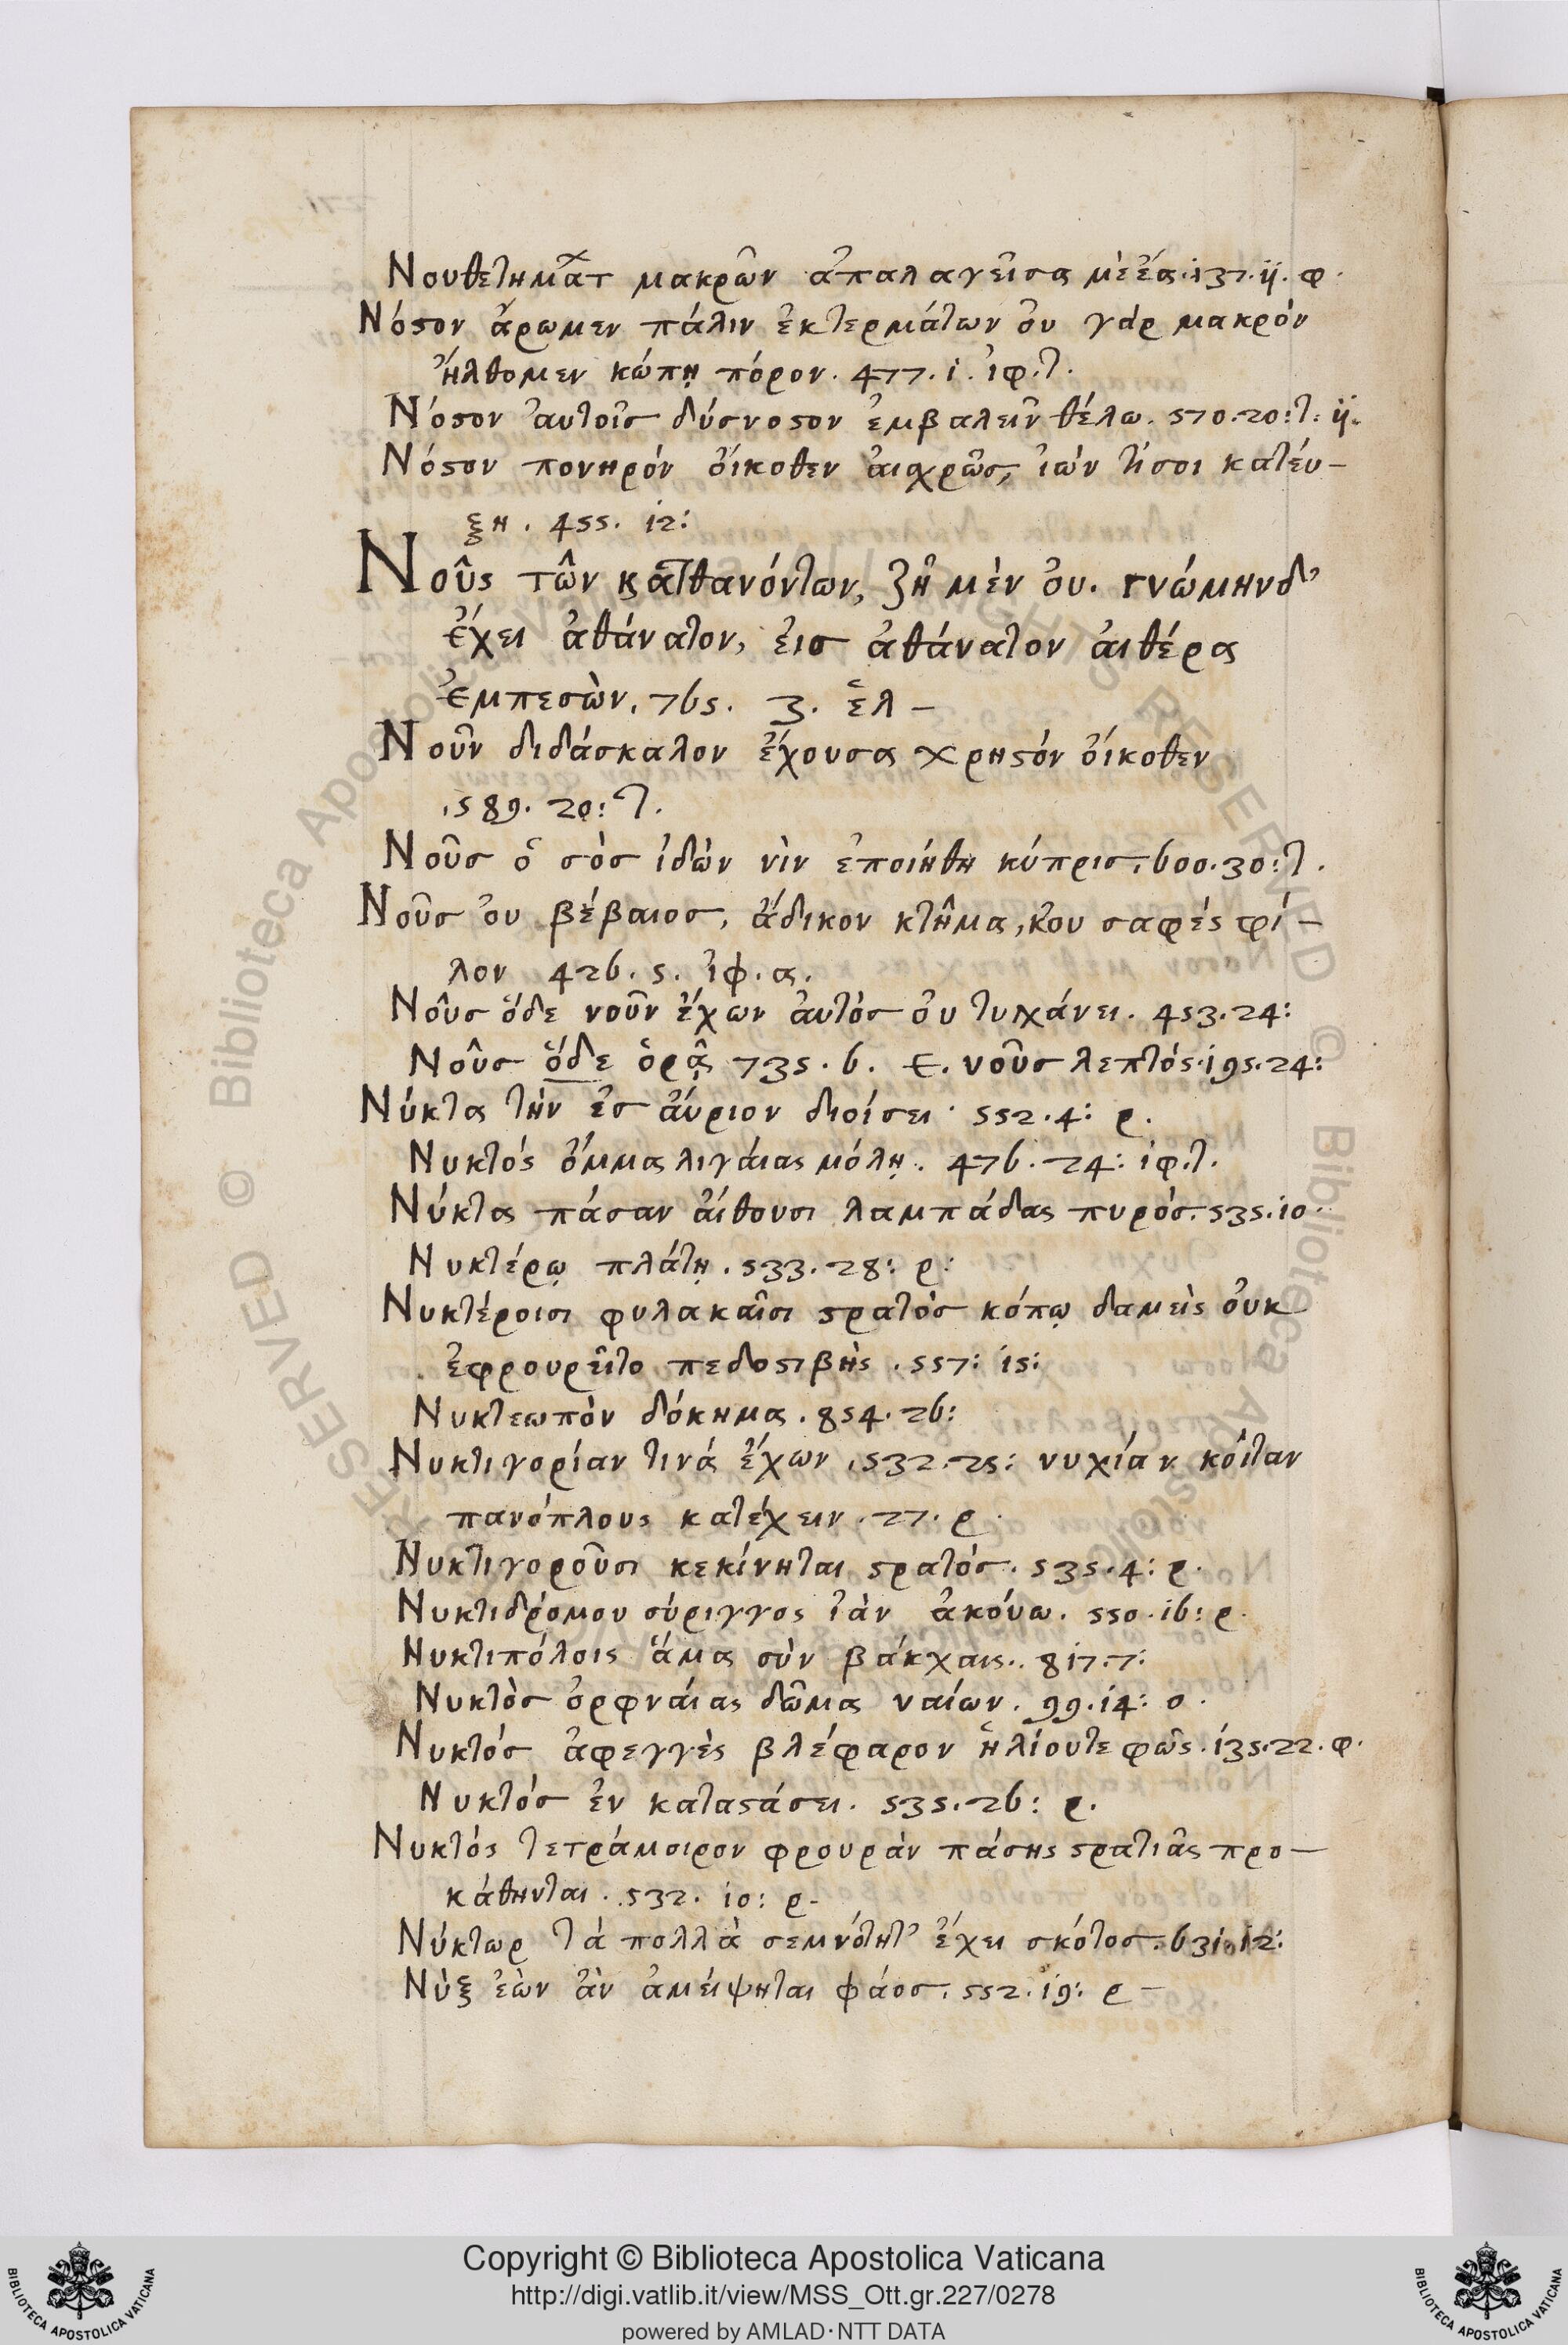 Νουθετημάτ μακρῶν ἀπαλαγεῖσα μ̀εἔα·137.ij. φ.
Νόστον ἄρωμεν πάλιν ἐκτερμάτων ὀυ γάρ μακρόν
ἤλθομεν κώπῃ πόρον. 477. i. ἰφ.τ.
Νόστον ἀυτοῖσ δύσνοστον ἐμβαλεῖν θέλω. 570.20: τ: ij.
Νόστον πονηρόν ὄικοθεν ἀισχρῶσ, ἰών τίσοι κατέυ-
ξη. 455. 12:
Νοῦς τῶν κατθανόντων, ζῆ μὲν ὀυ. γνώμηνδ’
ἔχει ἀθάνατον, ἐισ ἀθάνατον ἀιθέρα
ἐμπεσὼν. 765. 3. ἑλ-
Νοῦν διδάσκαλον ἔχουσα χρηστόν ὄικοθεν
.589. 20: τ.
Νοῦσ ὁ σὸσ ἰδὼν νὶν ἐποιήθη κύπρισ. 600.30: τ.
Νοῦσ ὀυ βέβαιοσ, ἄδικον κτῆμα, κὀυ σαφές φί-
λον 426. 5. ἰφ. α.
Νοῦς ὅδε νοῦν ἔχων ἀυτὸσ ὀυ τυγχάνει. 453.24:
Νοῦσ ὅδε ὁρᾷ 735. 6. ε. νοῦσ λεπτός·195.24:
Νύκτα τὴν ἐσ ἄυριον διοίσει· 552.4: ρ.
Νυκτός ὄμμα λιγάιας μόλῃ. 476. 24: ἰφ.τ.
Νύκτα πάσαν ἄιθουσι λαμπάδας πυρόσ. 535.10·
Νυκτέρῳ πλάτῃ. 533. 28: ρ:
Νυκτέροισι φυλακαῖσι στρατὸσ κόπῳ δαμεὶς ὀυκ
ἐφρουρεῖτο πεδοστιβὴς. 557: 15:
Νυκτεωπὸν δόκημα. 854. 26:
Νυκτιγορίαν τινά ἔχων. 532.25: νυχίαν κόιταν
πανόπλους κατέχειν. 27. ρ.
Νυκτιγοροῦσι κεκίνηται στρατόσ. 535. 4: ρ.
Νυκτιδρόμου σύριγγος ἰὰν ἀκόυω. 550. 16: ρ.
Νυκτιπόλοις ἅμα σὺν βάκχαις. 817.7:
Νυκτὸσ ὀρφνάιας δῶμα ναίων. 99.14: ο.
Νυκτόσ ἀφεγγὲς βλέφαρον ἡλίουτε φῶς. 135.22. φ.
Νυκτόσ ἐν καταστάσει. 535. 26: ρ.
Νυκτός τετράμοιρον φρουρὰν πάσης στρατιᾶς προ-
κάθηνται. 532. 10: ρ-
Νύκτωρ τά πολλὰ σεμνότητ’ ἔχει σκότοσ. 631.12:
Νὺξ ἐὼν ἀν ἀμείψηται φάοσ. 552. 19: ρ-
Copyright © Biblioteca Apostolica Vaticana
http://digi.vatlib.it/view/MSS_Ott.gr.227/0278
powered by AMLAD·NTT DATA